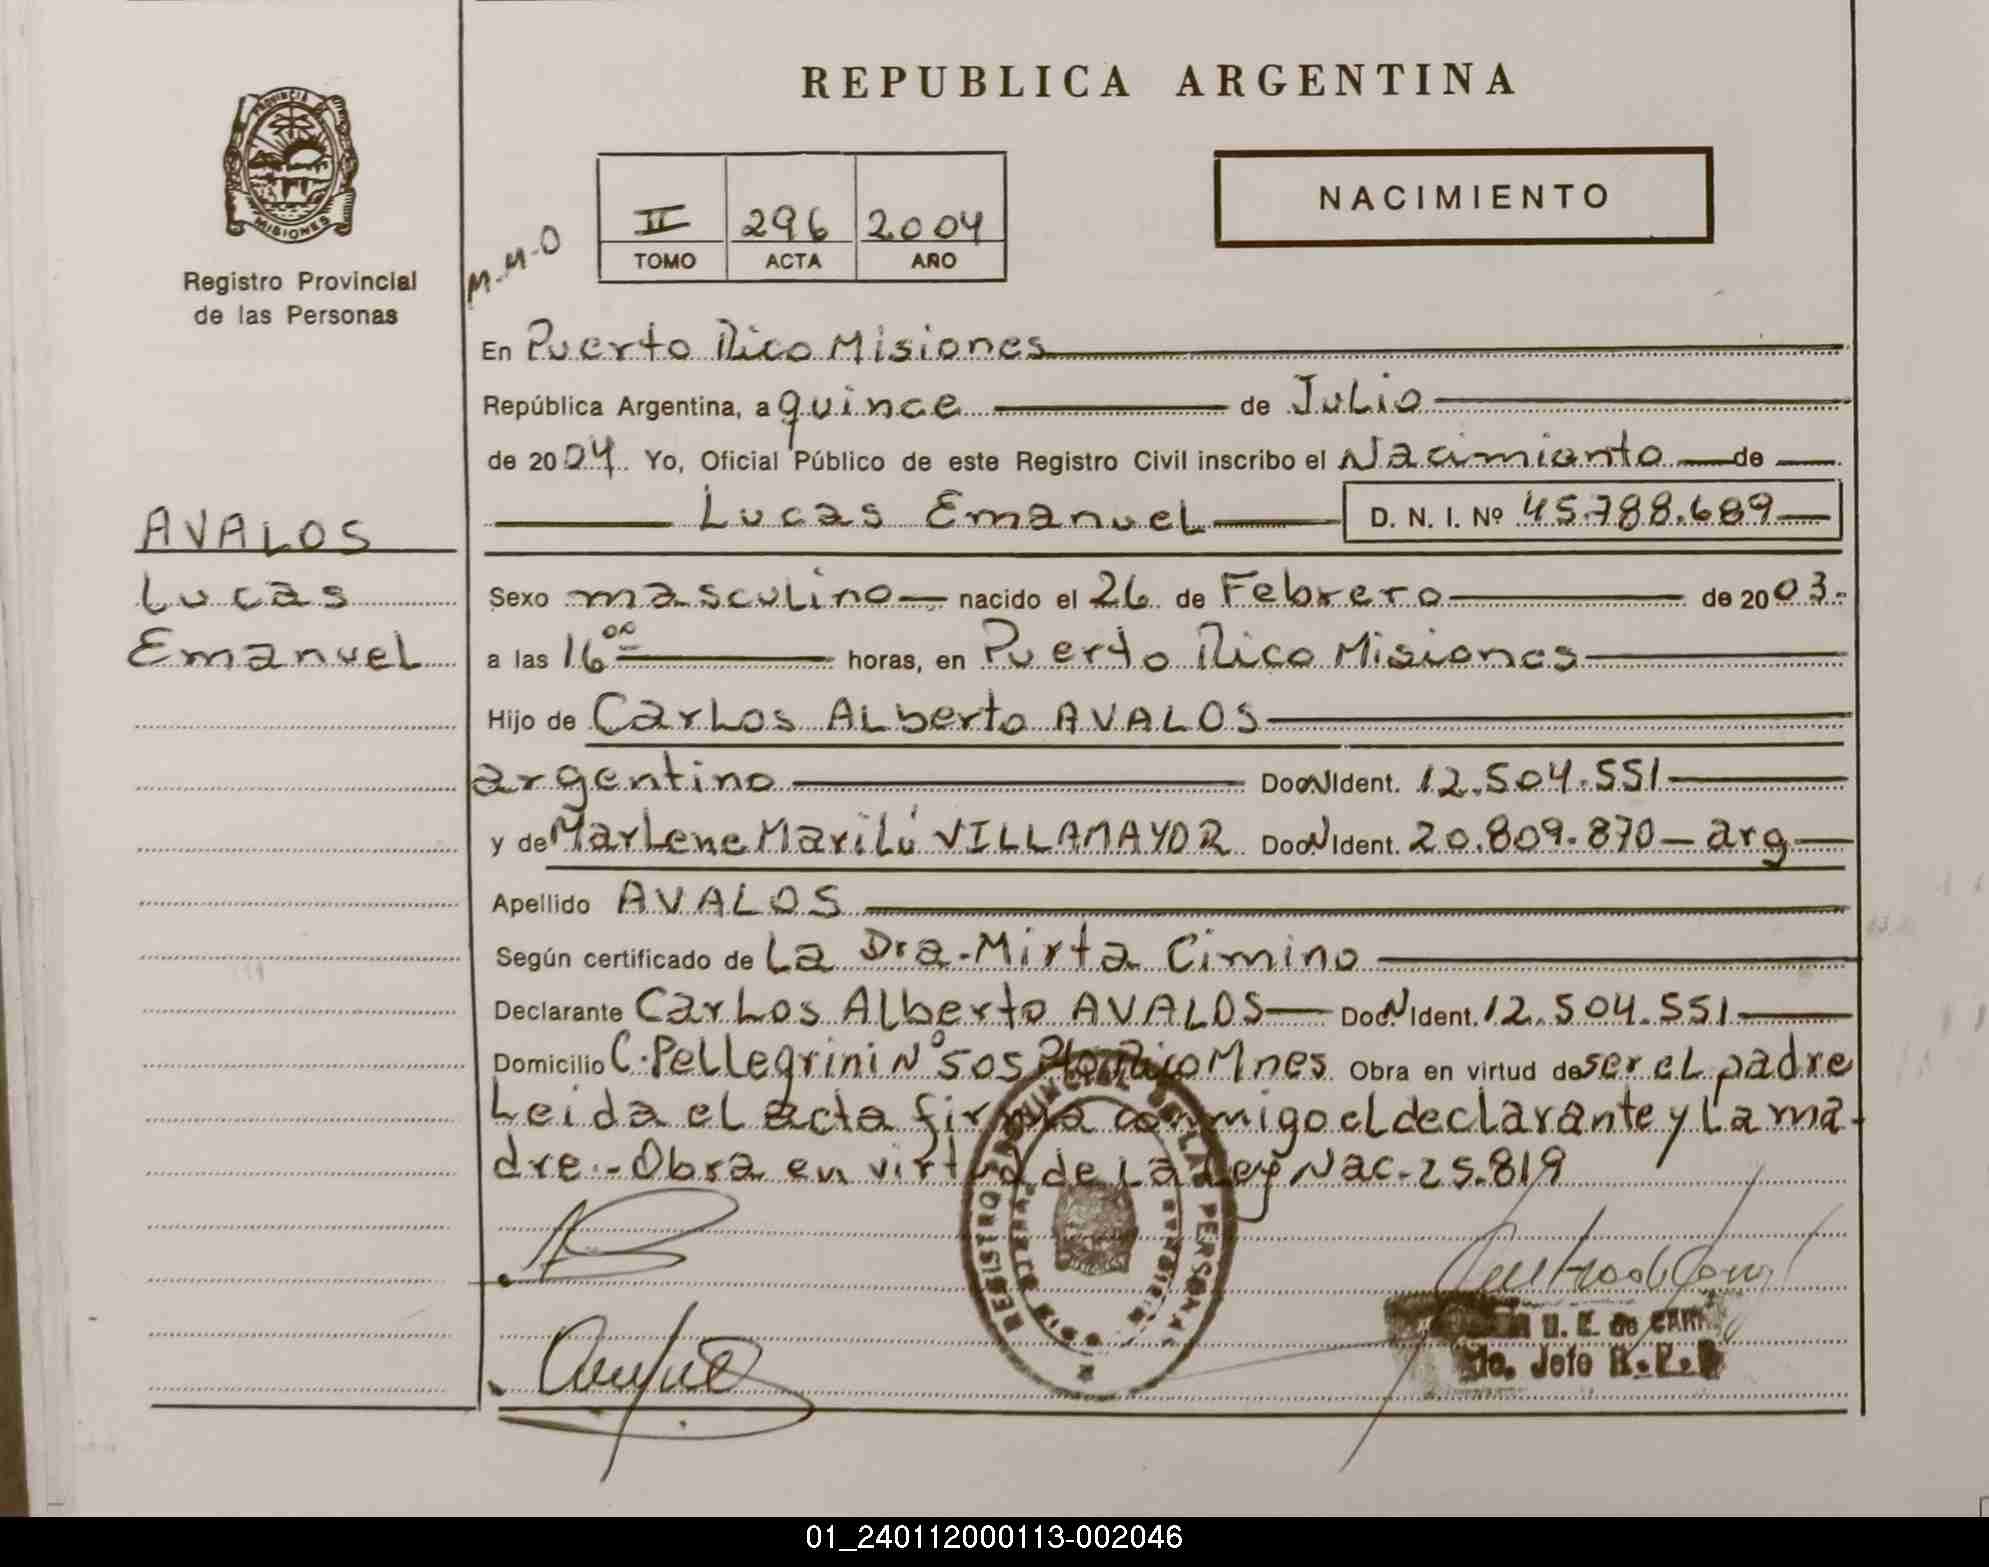 REPUBLICA ARGENTINA
PROVINCIA DE
MISIONES
Registro Provincial
de las Personas
M-M-O
II 296 2004
TOMO ACTA AÑO
NACIMIENTO
En Puerto Rico Misiones
República Argentina, a quince de Julio
de 2004. Yo, Oficial Público de este Registro Civil inscribo el Nacimiento de
Lucas Emanuel D. N. I. Nº 45.788.689
AVALOS
Lucas
Emanuel
Sexo masculino nacido el 26 de Febrero de 2003.
a las 16 00 horas, en Puerto Rico Misiones
Hijo de Carlos Alberto AVALOS
argentino Doc N Ident. 12.504.551
y de Marlene Marilú VILLAMAYOR Doc N Ident. 20.809.870 - arg
Apellido AVALOS
Según certificado de La Dra. Mirta Cimino
Declarante Carlos Alberto AVALOS Doc N Ident. 12.504.551
Domicilio C. Pellegrini Nº 505 Pto Rico Mnes Obra en virtud de ser el padre
Leida el acta firma conmigo el declarante y La ma-
dre.- Obra en virtud de La Ley Nac. 25.819
REGISTRO PROVINCIAL DE LAS PERSONAS
Jefe R.P.P
01_240112000113-002046